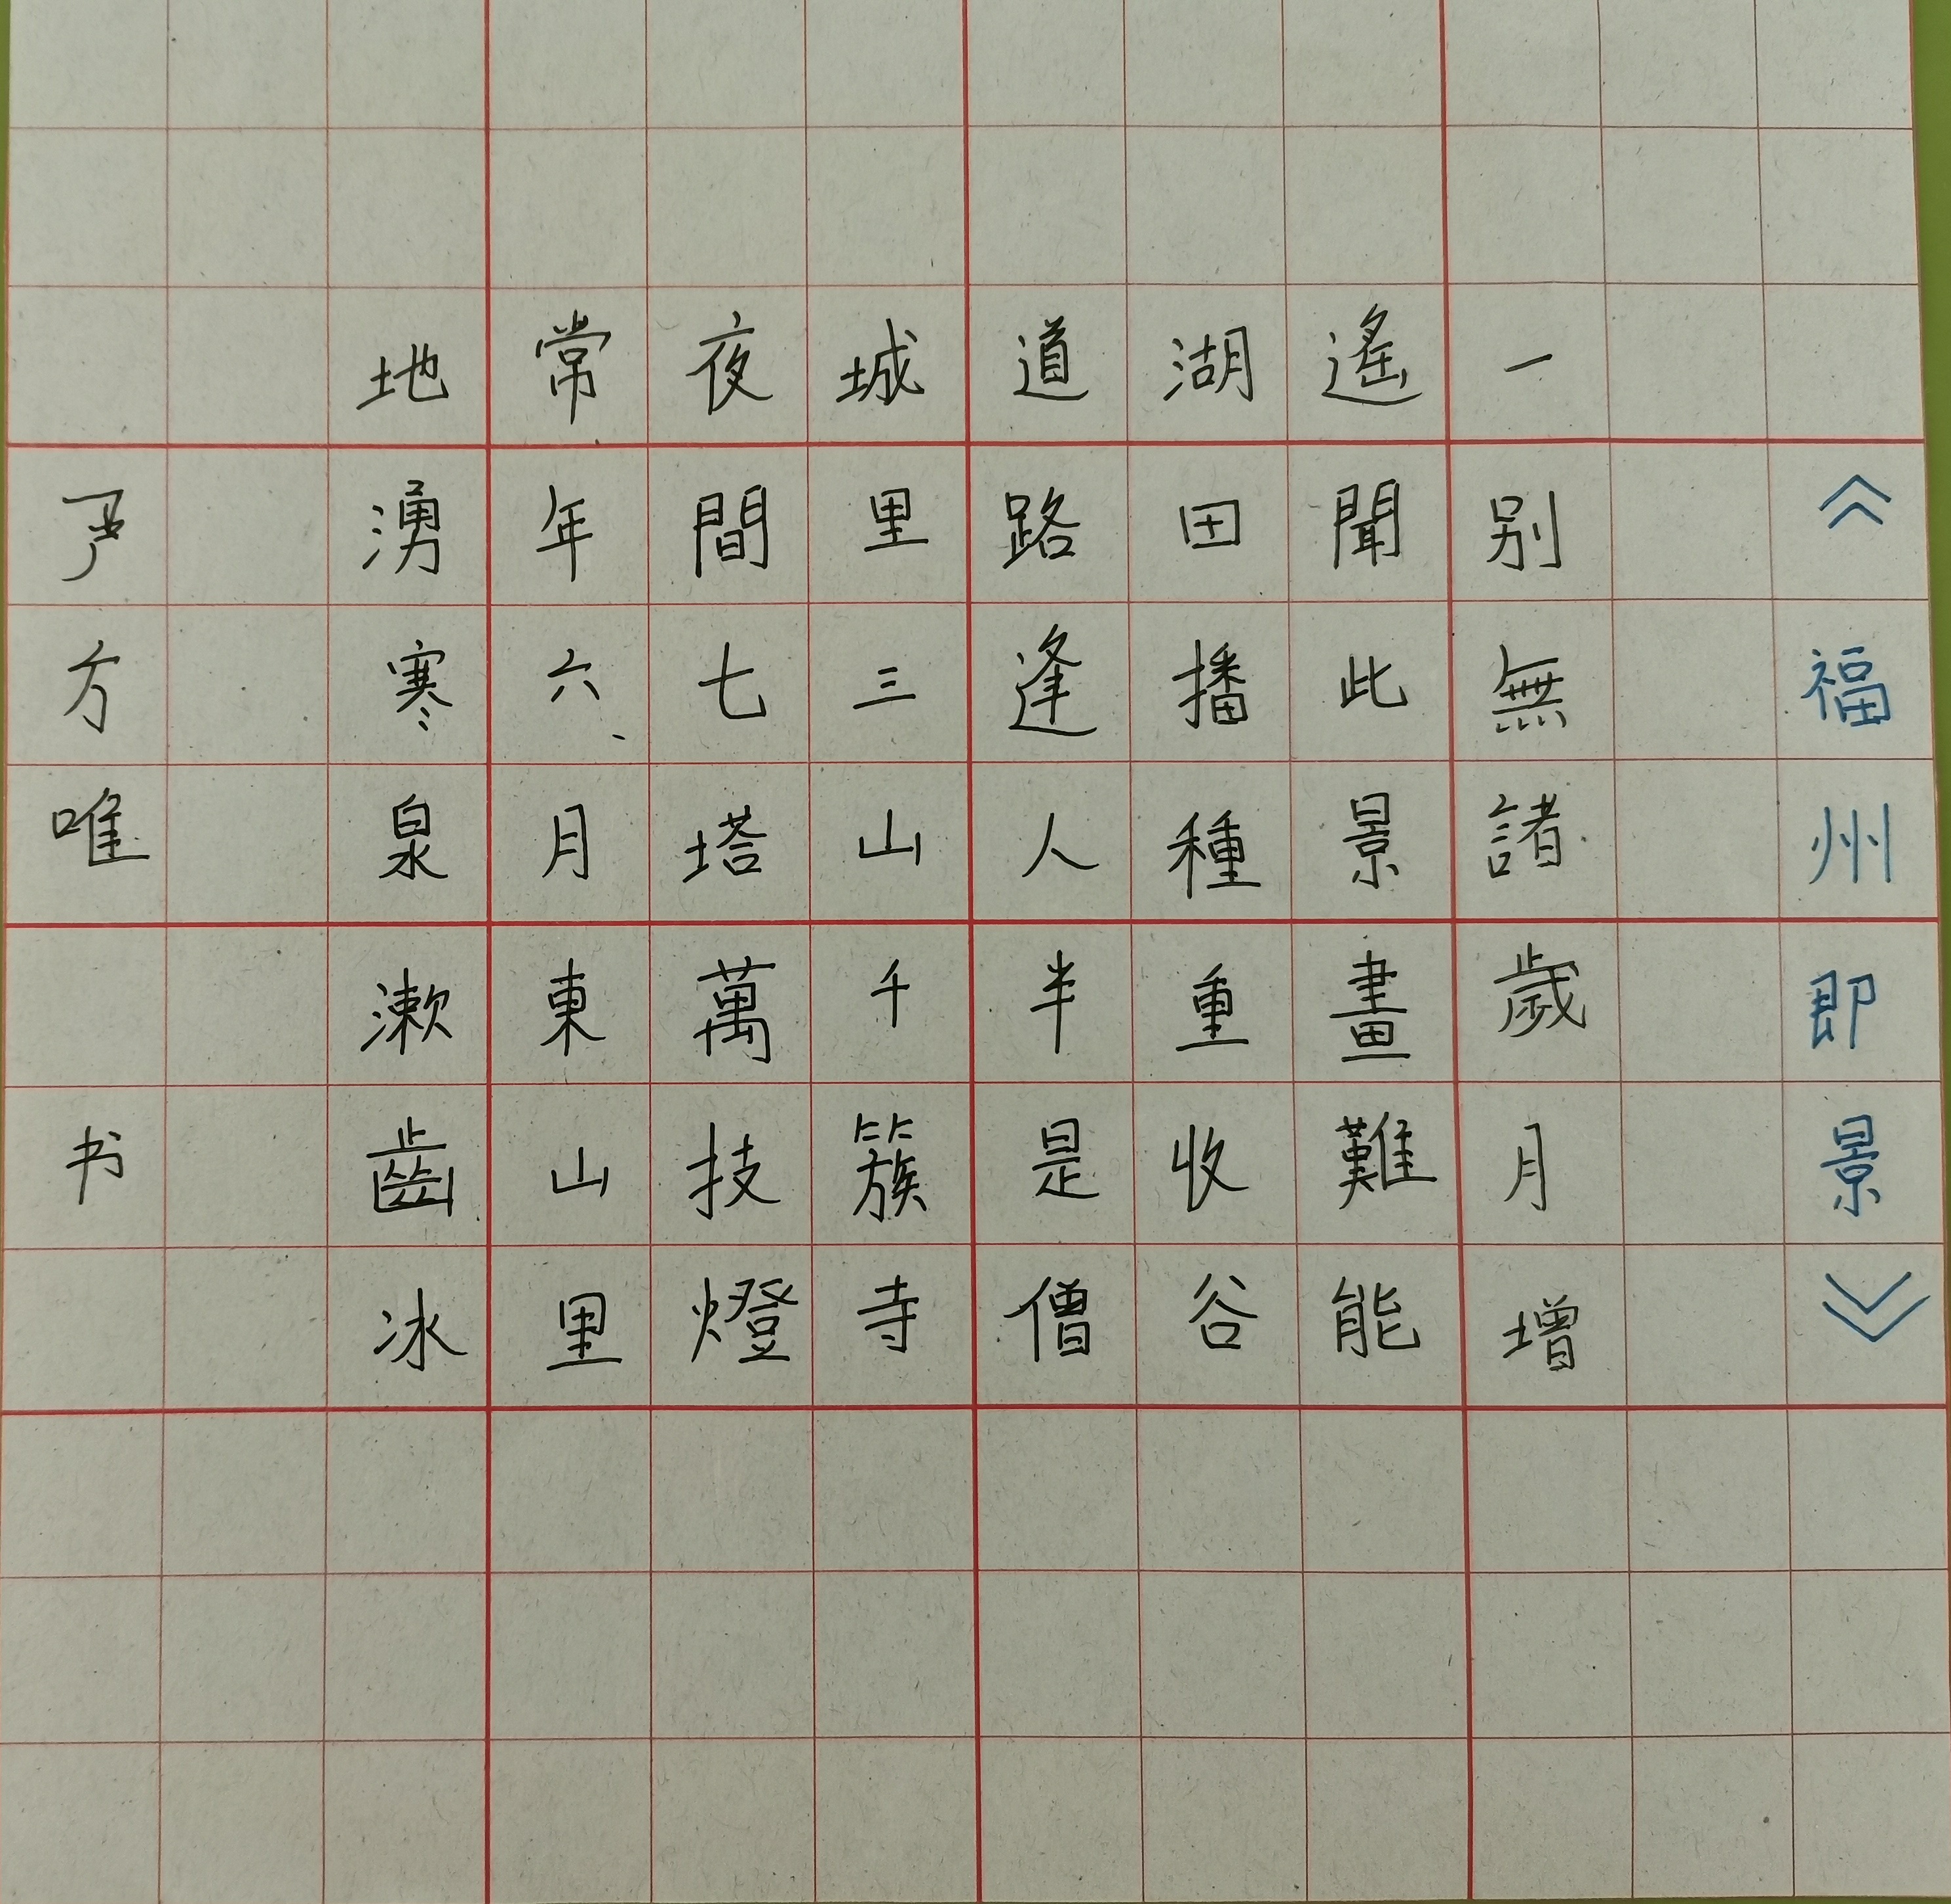 《福州即景》
一别無諸歲月增
遙聞此景畫難能
湖田播種重收谷
道路逢人半是僧
城里三山千簇寺
夜間七塔萬技燈
常年六月東山里
地湧寒泉漱齒冰
方唯书